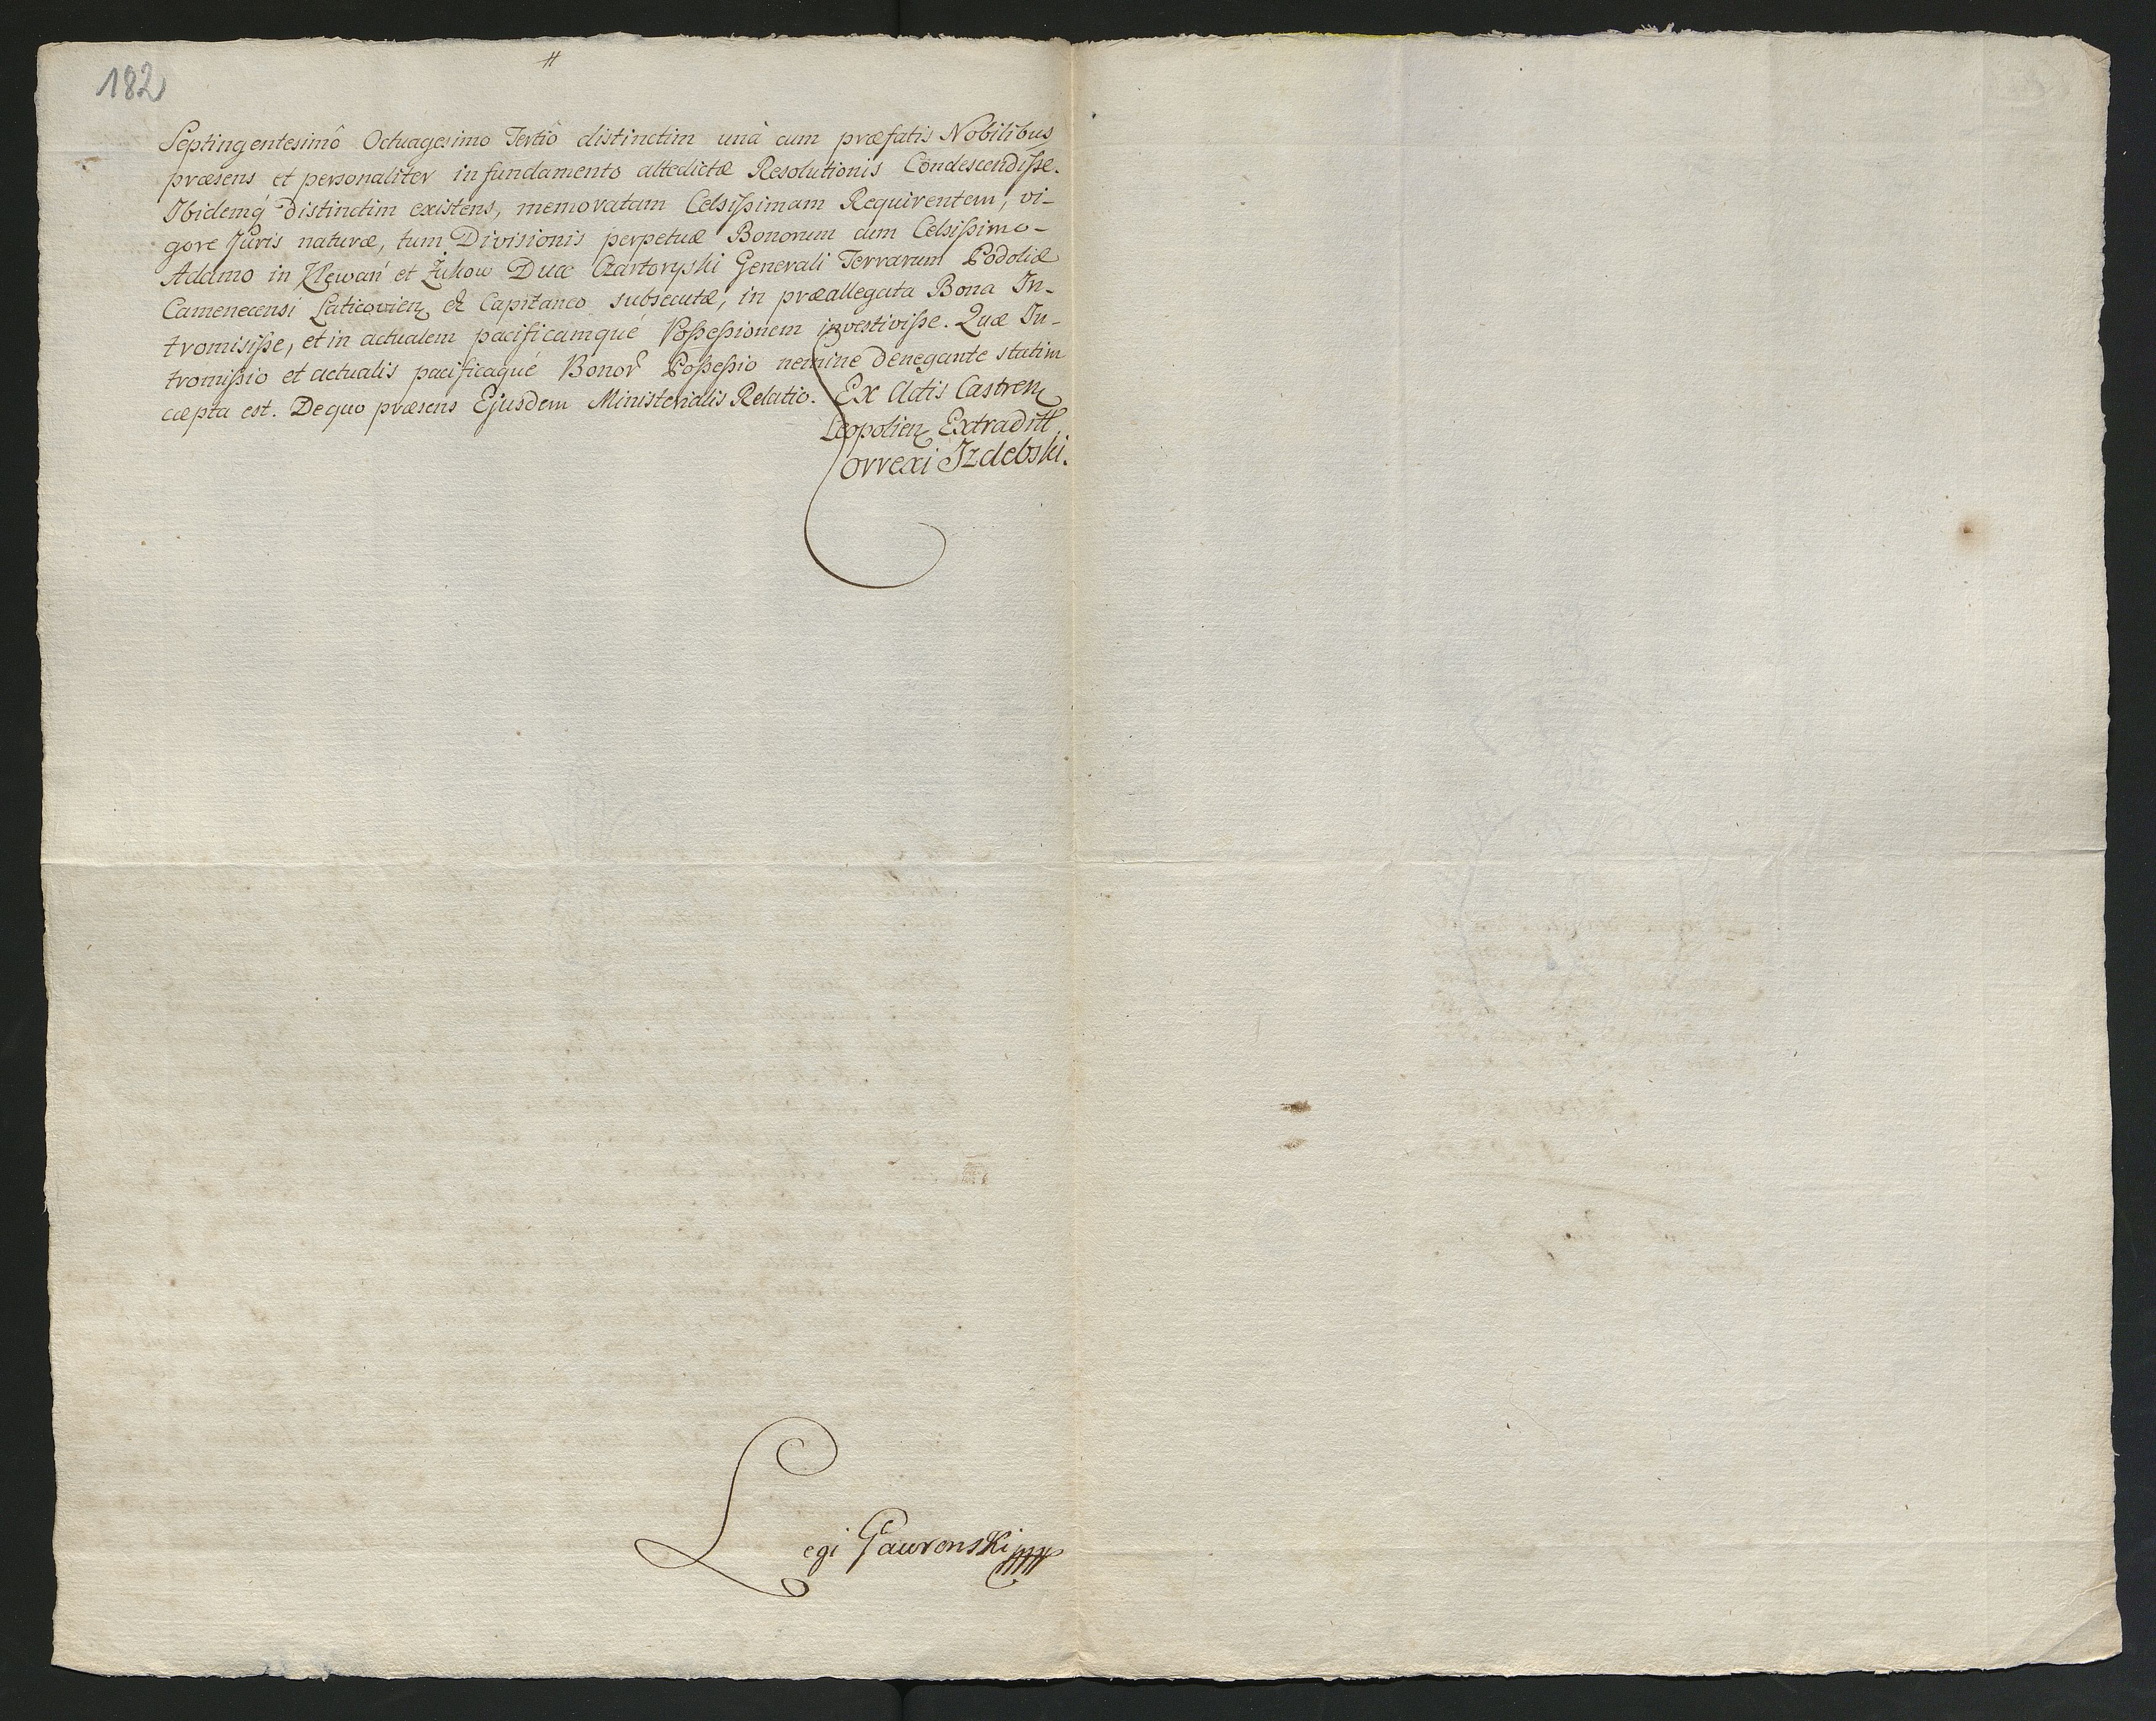 182
Septingentesimô Octuagesimo Tertiô distinctim unà cum præfatis Nobilibus
præsens et personaliter in fundamento altedictæ Resolutionis Condescendiſse.
Ibidemq distinctim existens, memoratam Celsiſsimam Requirentem, vi-
gore Juris naturæ, tum Divisionis perpetuæ Bonorum cum Celsiſsimo-
Adamo in Klewań et Żukow Duce Czartoryski Generali Terrarum Podoliæ
Camenecensi Laticovien et Capitaneo subsecutæ, in præallegata Bona In-
tromisiſse, et in actualem pacificamque Poſseſsionem investiviſse. Quæ In-
tromiſsio et actualis pacificaque Bonor Poſseſsio nemine denegante statim
cæpta est. De quo præsens Ejusdem Ministerialis Relatio. Ex Actis Castren
Leopolien Extradit
Correxi Izdebski.
Legi Gauronski